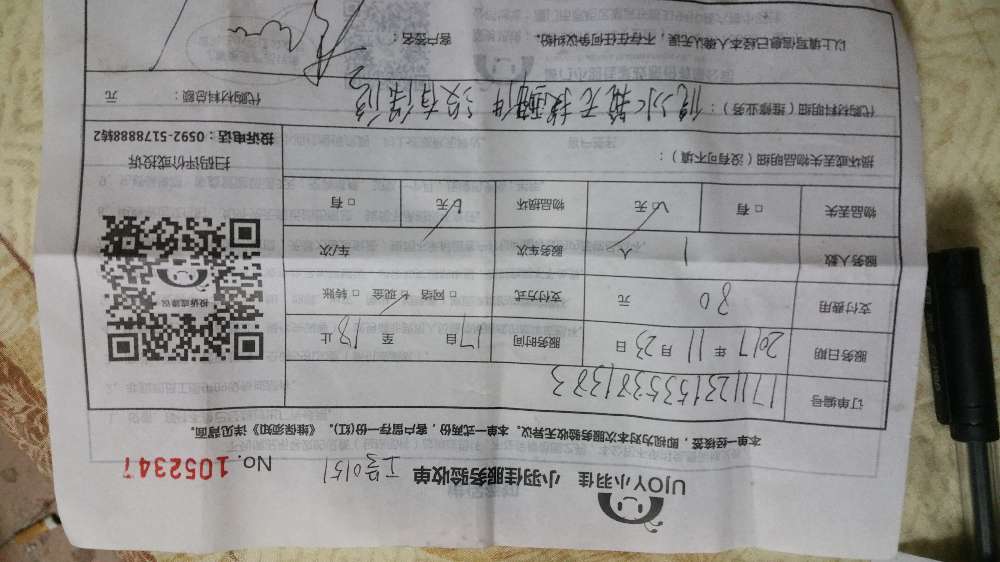 UJOY小羽佳 小羽佳服务验收单 工号0151 No. 1052347
本单一经核签,即视为对本次服务验收无异议。本单一式两份,客户留存一份(红)。《维保须知》详见背面。
订单编号 1711231535381383
服务日期 2017 年 11 月 23 日 服务时间 17 自 至 18 止
支付费用 80 元 支付方式 □ 网络 ☑ 现金 □ 转账
服务人数 1 人 服务车次 车/次
物品丢失 □ 有 ☑ 无 物品损坏 □ 有 ☑ 无
损坏或丢失物品明细(没有可不填):
扫码评价或投诉
投诉电话:0592-5178888转2
投诉或建议
代购材料明细(维修业务): 水箱无换配件 没有保修
代购材料总额: 元
以上填写信息已经本人确认无误,不存在任何争议纠纷。 客户签名: